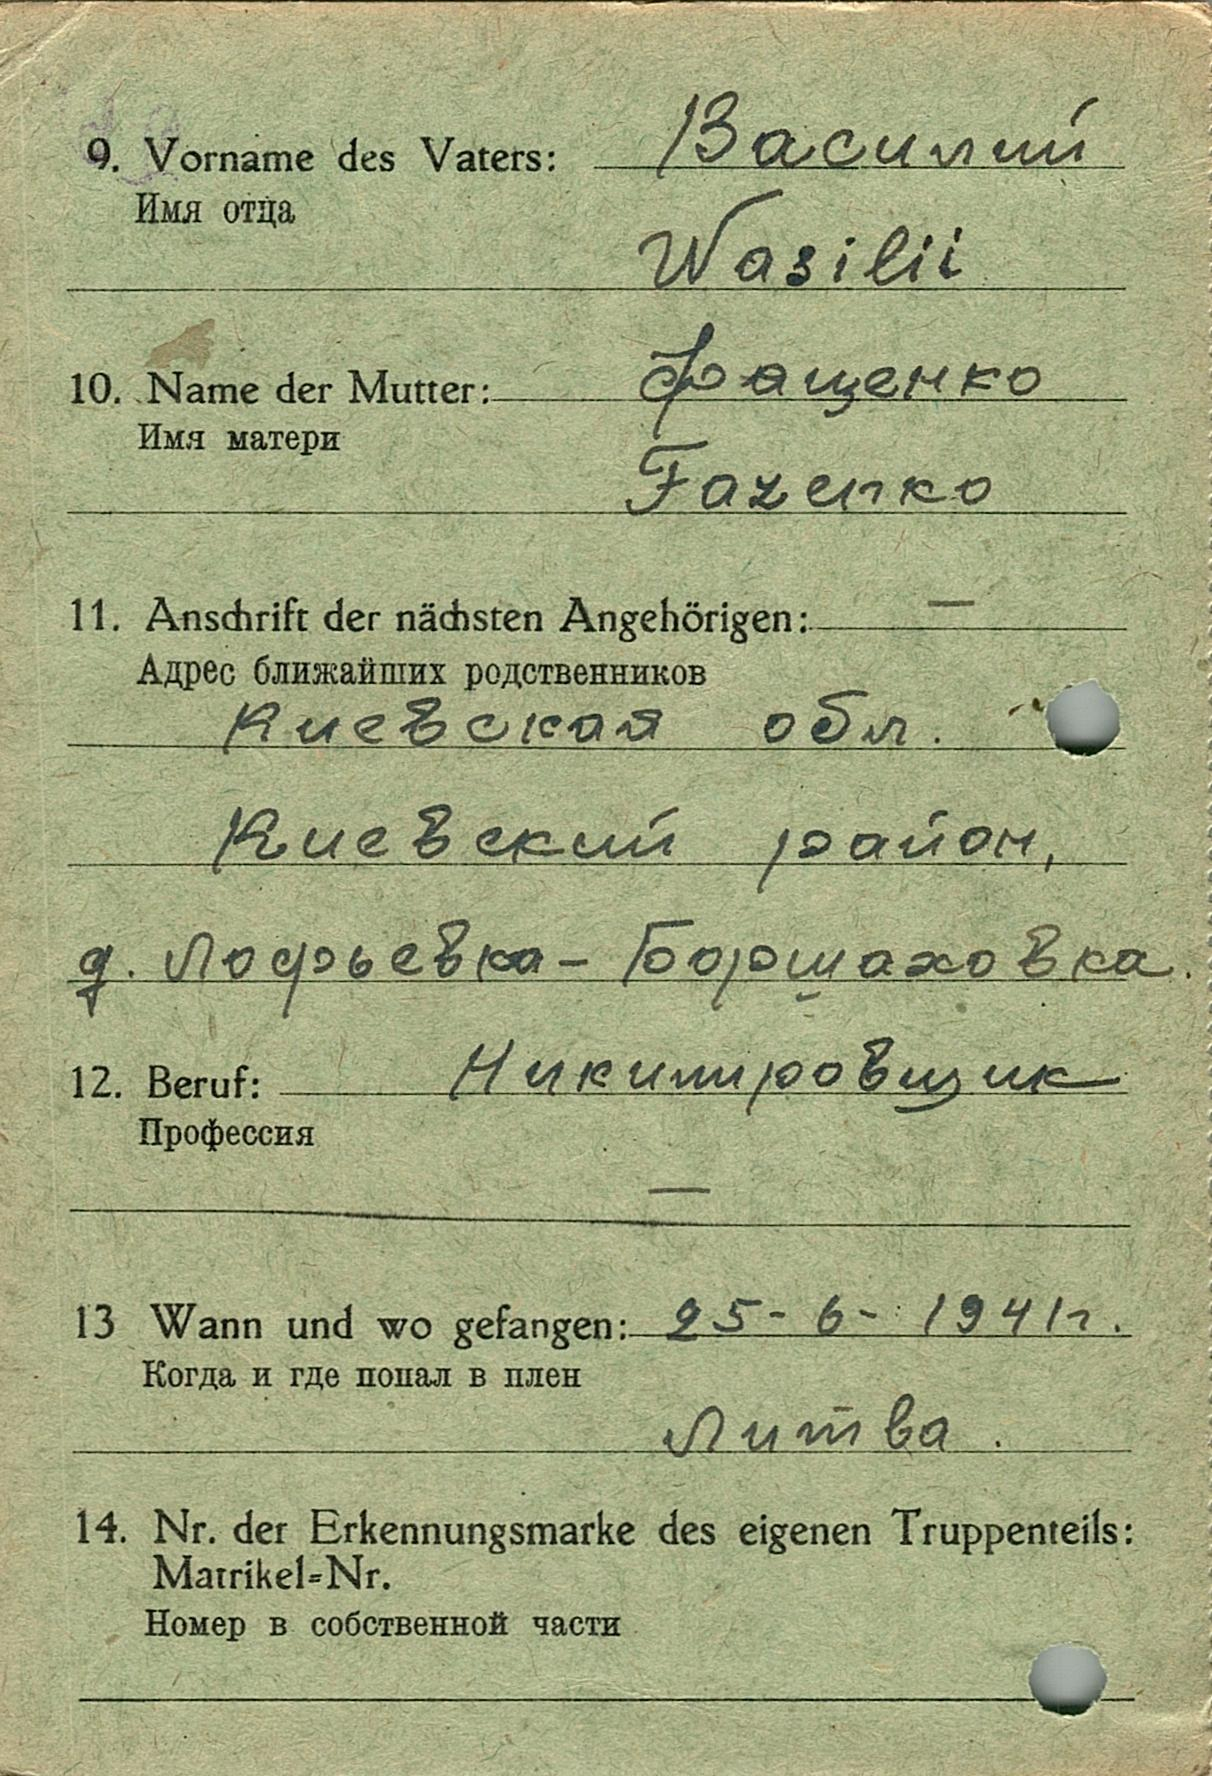 9. Vorname des Vaters: Василий
Имя отца
Wasilii
10. Name der Mutter: Фащенко
Имя матери
Fazenko
11. Anschrift der nächsten Angehörigen: —
Адрес ближайших родственников
Киевская обл.
Киевский район,
д. Лофрьевка - Борщаховка.
12. Beruf: Никилировщик
Профессия
—
13 Wann und wo gefangen: 25-6-1941г.
Когда и где попал в плен
Литва.
14. Nr. der Erkennungsmarke des eigenen Truppenteils:
Matrikel=Nr.
Номер в собственной части